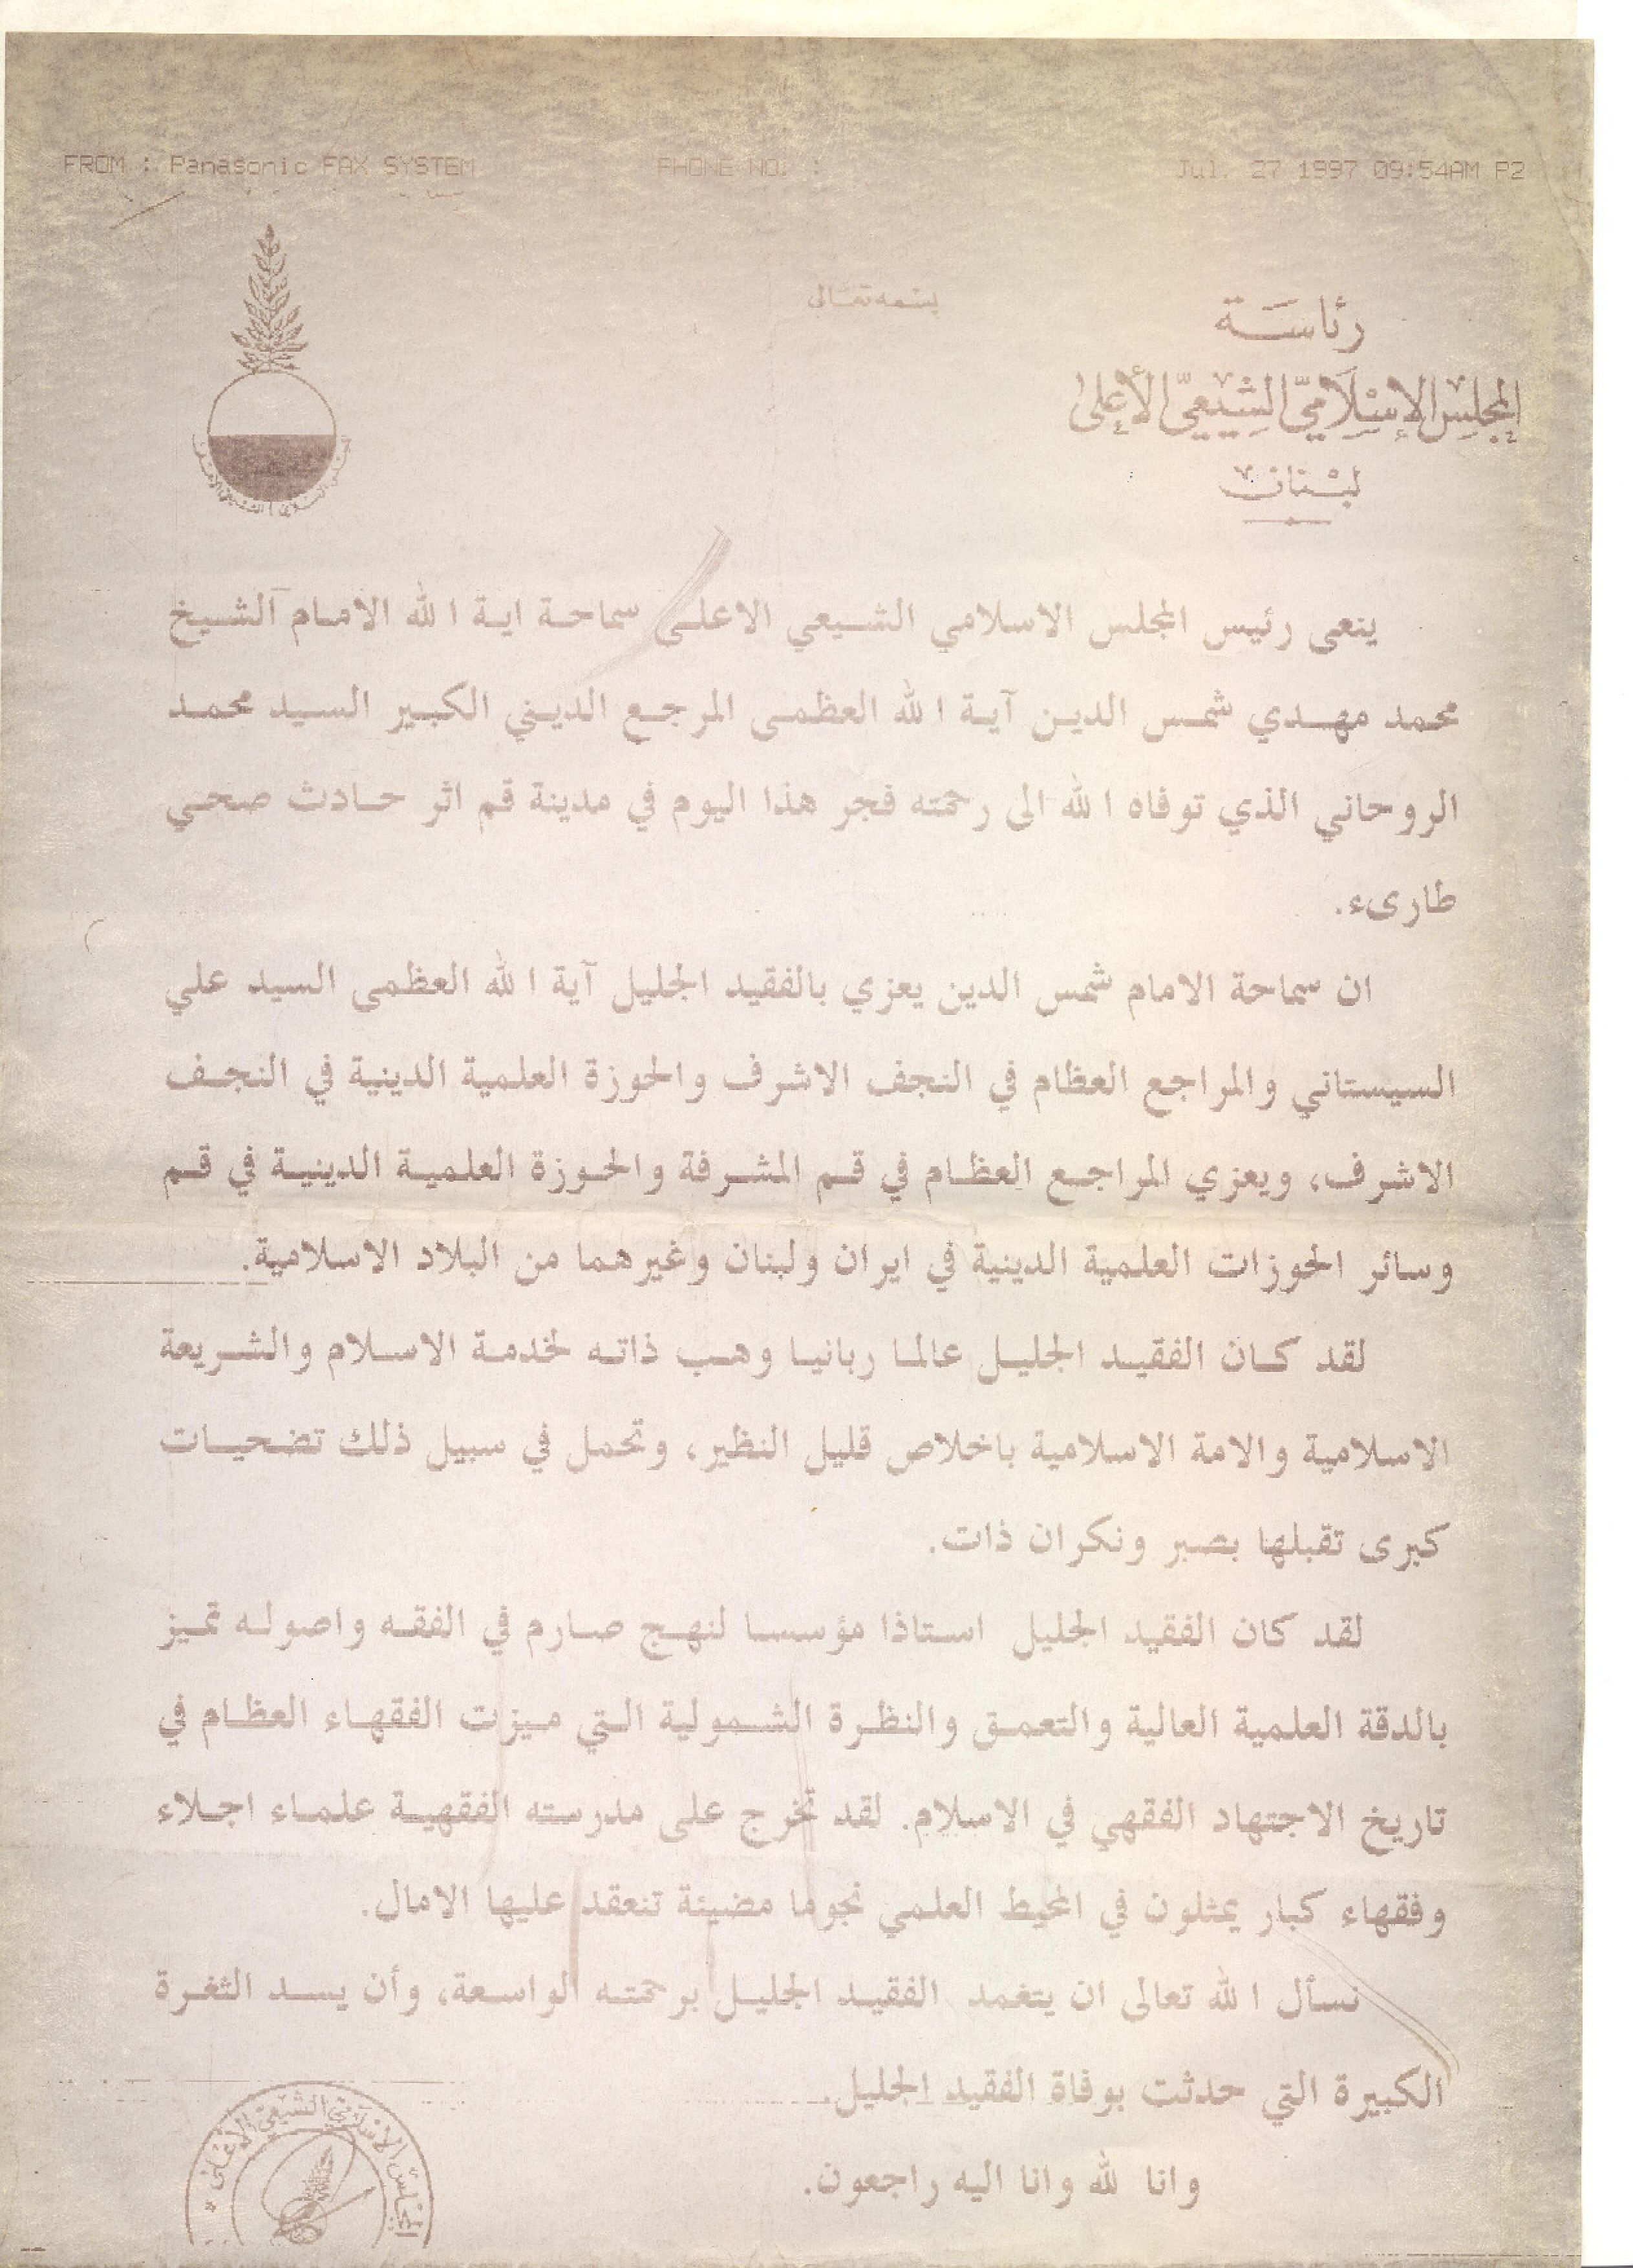 FROM : Panasonic FAX SYSTEM PHONE NO. : Jul. 27 1997 09:54AM P2
بسمه تعالى
رئاسة
المجلس الإسلامي الشيعي الأعلى
لبنان
ينعى رئيس المجلس الاسلامي الشيعي الاعلى سماحة اية الله الامام الشيخ
محمد مهدي شمس الدين آية الله العظمى المرجع الديني الكبير السيد محمد
الروحاني الذي توفاه الله الى رحمته فجر هذا اليوم في مدينة قم اثر حادث صحي
طارىء.
ان سماحة الامام شمس الدين يعزي بالفقيد الجليل آية الله العظمى السيد علي
السيستاني والمراجع العظام في النجف الاشرف والحوزة العلمية الدينية في النجف
الاشرف، ويعزي المراجع العظام في قم المشرفة والحوزة العلمية الدينية في قم
وسائر الحوزات العلمية الدينية في ايران ولبنان وغيرهما من البلاد الاسلامية.
لقد كان الفقيد الجليل عالما ربانيا وهب ذاته لخدمة الاسلام والشريعة
الاسلامية والامة الاسلامية باخلاص قليل النظير، وتحمل في سبيل ذلك تضحيات
كبرى تقبلها بصبر ونكران ذات.
لقد كان الفقيد الجليل استاذا مؤسسا لنهج صارم في الفقه واصوله تميز
بالدقة العلمية العالية والتعمق والنظرة الشمولية التي ميزت الفقهاء العظام في
تاريخ الاجتهاد الفقهي في الاسلام. لقد تخرج على مدرسته الفقهية علماء اجلاء
وفقهاء كبار يمثلون في المحيط العلمي نجوما مضيئة تنعقد عليها الامال.
نسأل الله تعالى ان يتغمد الفقيد الجليل برحمته الواسعة، وأن يسد الثغرة
الكبيرة التي حدثت بوفاة الفقيد الجليل.
وانا لله وانا اليه راجعون.
المجلس الإسلامي الشيعي الأعلى